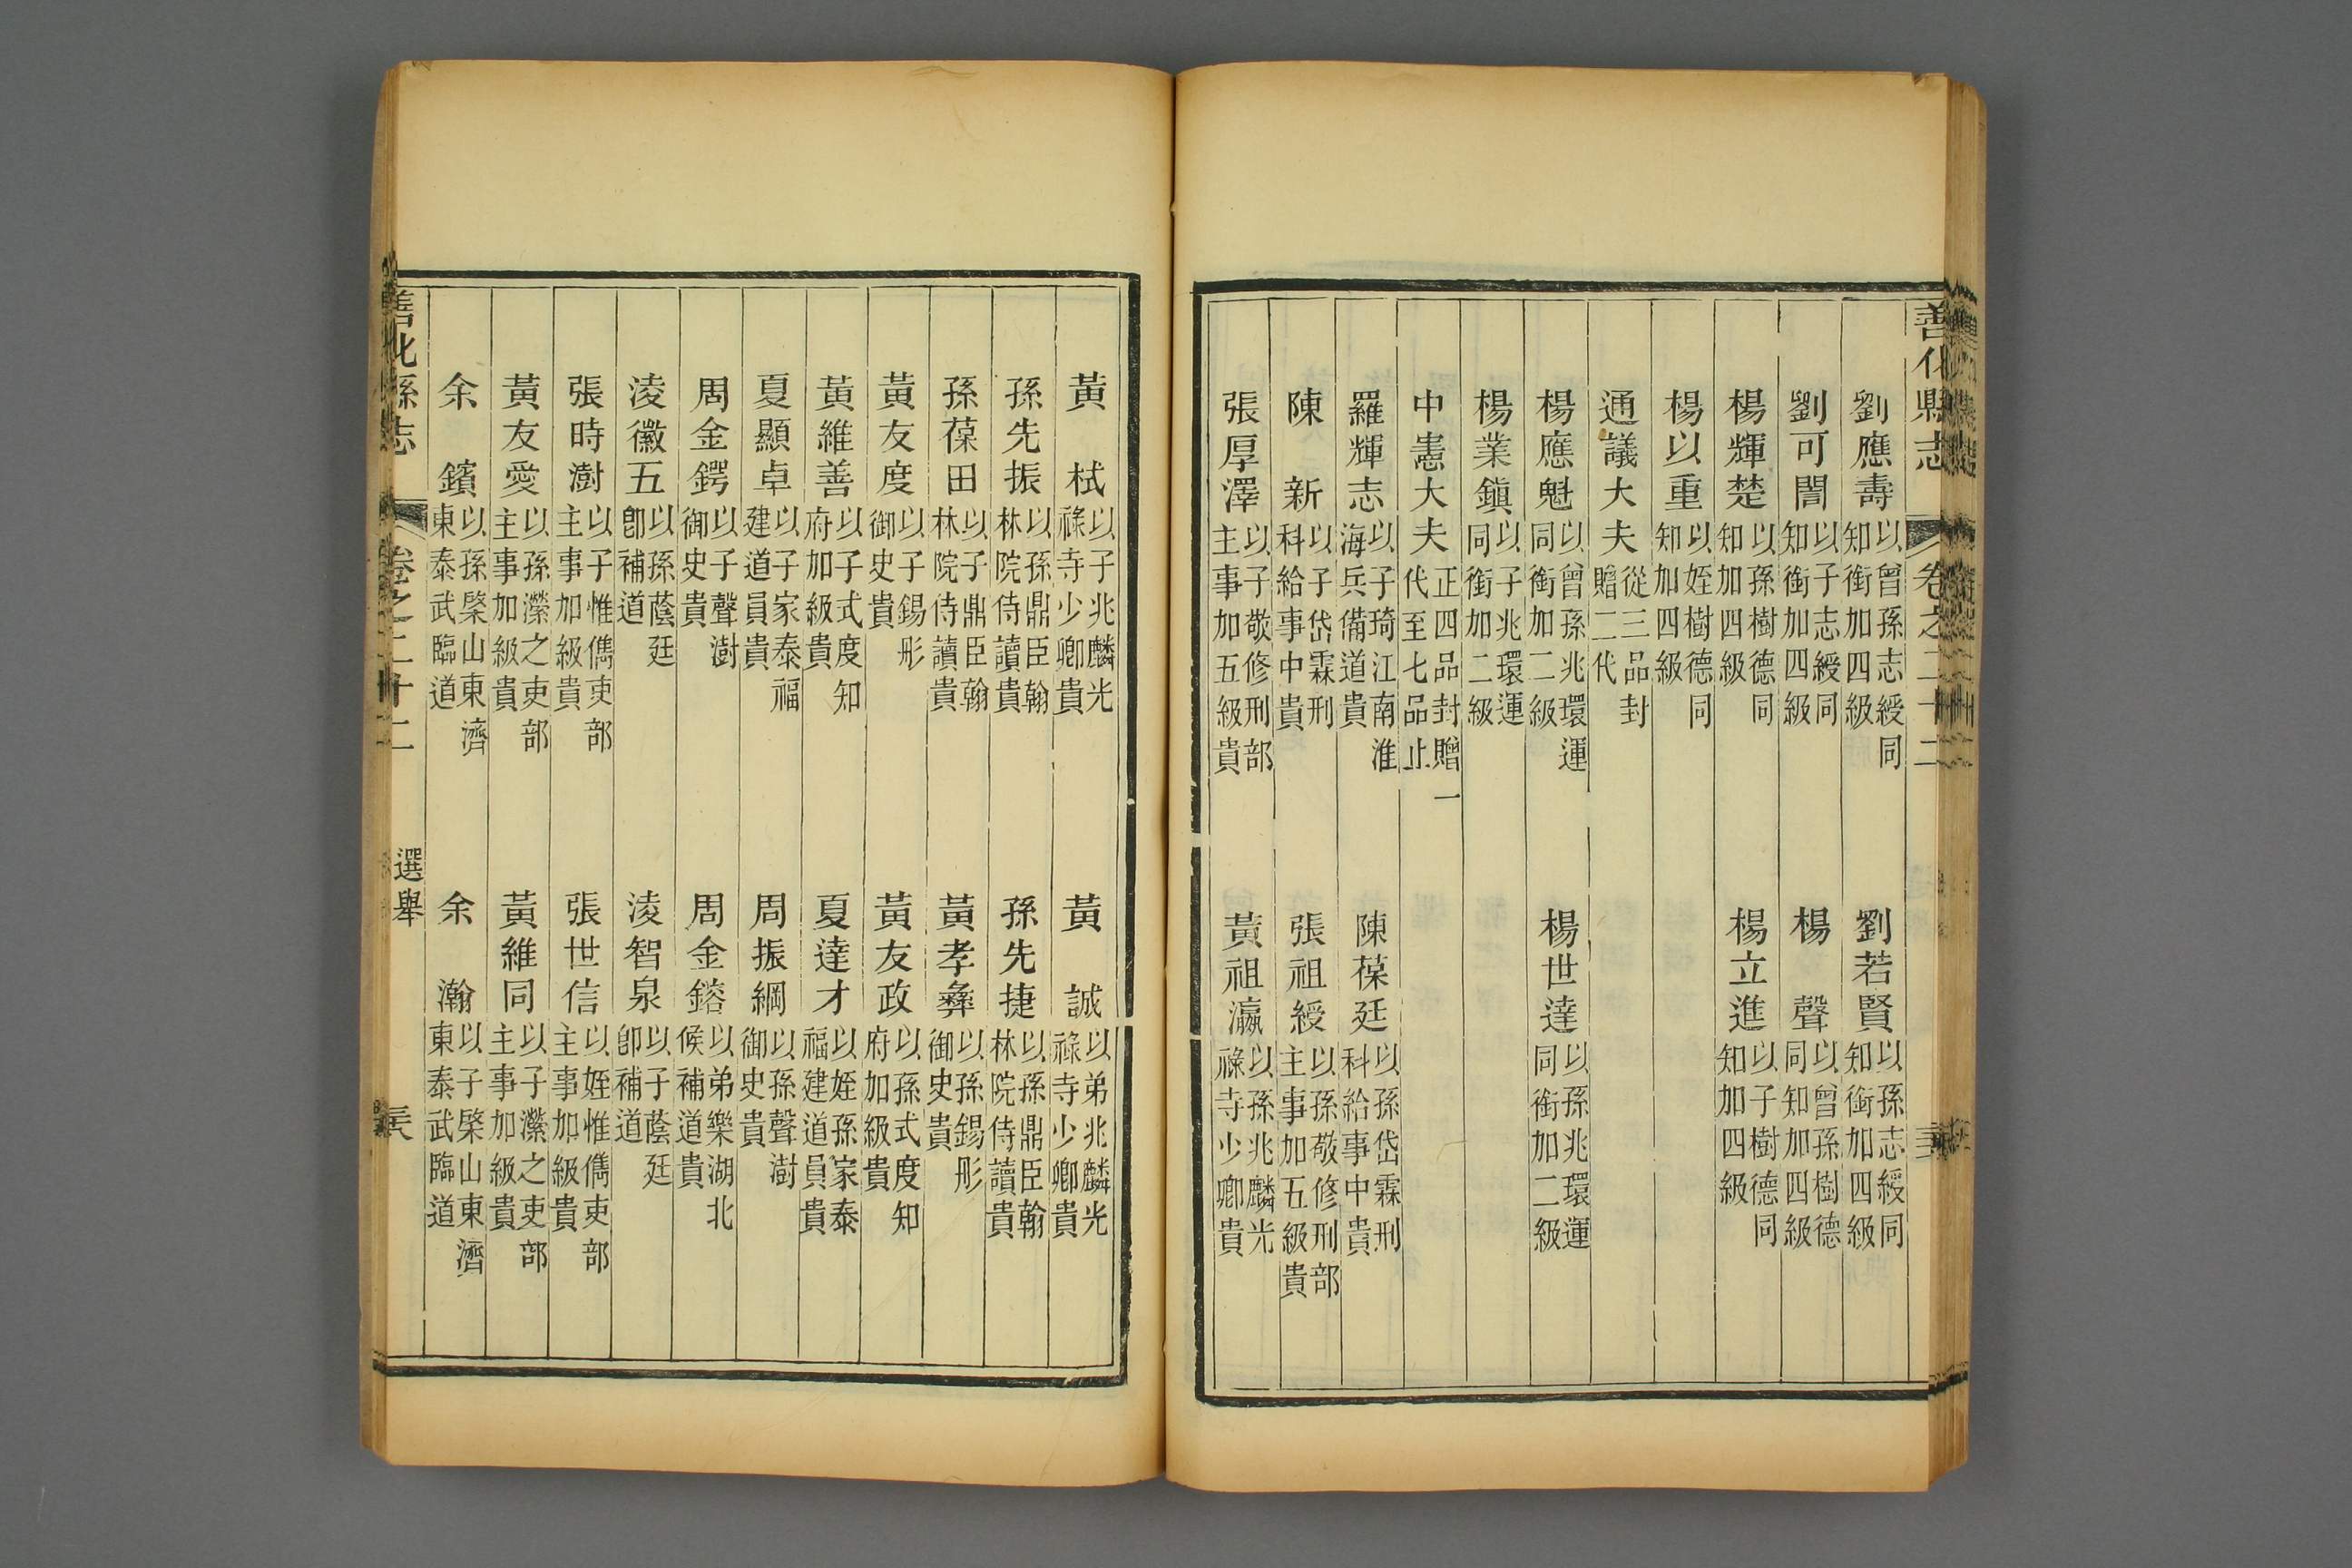 善化縣志 卷之二十二
劉應壽 以曾孫志綬同知銜加四級 劉若賢 以孫志綬同知銜加四級
劉可誾 以子志綬同知銜加四級 楊聲 以曾孫樹德同知加四級
楊輝楚 以孫樹德同知加四級 楊立進 以子樹德同知加四級
楊以重 以姪樹德同知加四級
通議大夫 從三品封贈二代
楊應魁 以曾孫兆環運同銜加二級 楊世達 以孫兆環運同銜加二級
楊業鎮 以子兆環運同銜加二級
中憲大夫 正四品封贈一代至七品止
羅輝志 以子琦江南淮海兵備道貴 陳葆廷 以孫岱霖刑科給事中貴
陳新 以子岱霖刑科給事中貴 張祖綬 以孫敬修刑部主事加五級貴
張厚澤 以子敬修刑部主事加五級貴 黃祖瀛 以孫兆麟光祿寺少卿貴
黃栻 以子兆麟光祿寺少卿貴 黃誠 以弟兆麟光祿寺少卿貴
孫先振 以孫鼎臣翰林院侍讀貴 孫先捷 以孫鼎臣翰林院侍讀貴
孫葆田 以子鼎臣翰林院侍讀貴 黃孝彝 以孫錫彤御史貴
黃友度 以子錫彤御史貴 黃友政 以孫式度知府加級貴
黃維善 以子式度知府加級貴 夏達才 以姪孫家泰福建道員貴
夏顯卓 以子家泰福建道員貴 周振綱 以孫聲澍御史貴
周金鍔 以子聲澍御史貴 周金鎔 以弟樂湖北候補道貴
淩徽五 以孫蔭廷即補道 淩智泉 以子蔭廷即補道
張時澍 以子惟儁吏部主事加級貴 張世信 以姪惟儁吏部主事加級貴
黃友愛 以孫濚之吏部主事加級貴 黃維同 以子濚之吏部主事加級貴
余鑌 以孫棨山東濟東泰武臨道 余瀚 以子棨山東濟東泰武臨道
善化縣志 卷之二十二 選舉